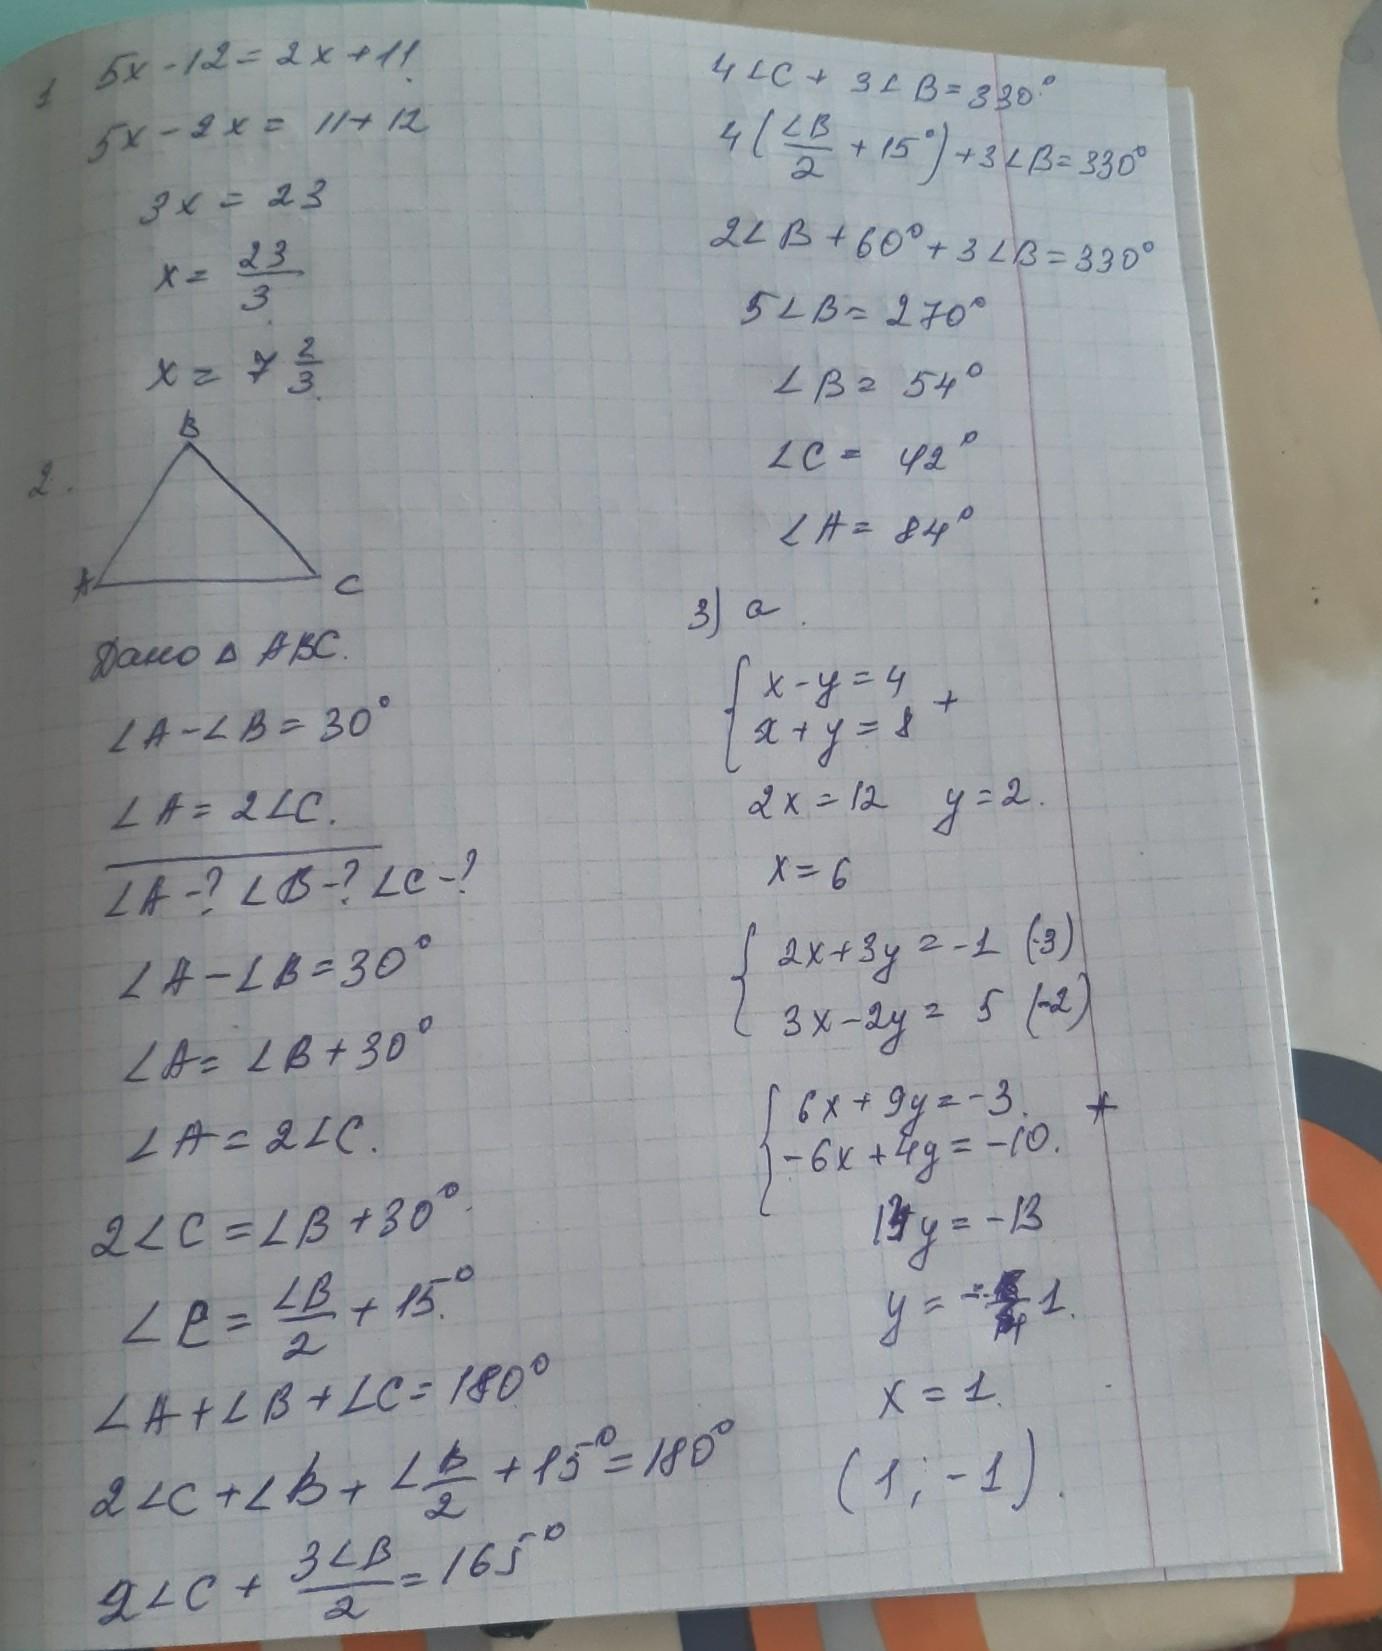 1 5x-12=2x+11.
5x-2x=11+12
3x=23
x=23/3.
x=7 2/3.
2.
B
A C
Дано △ ABC.
∠A-∠B=30°
∠A=2∠C.
∠A-? ∠B-? ∠C-?
∠A-∠B=30°
∠A=∠B+30°
∠A=2∠C.
2∠C=∠B+30°.
∠C=∠B/2+15°.
∠A+∠B+∠C=180°
2∠C+∠B+∠B/2+15°=180°
2∠C+3∠B/2=165°
4∠C+3∠B=330°
4(∠B/2+15°)+3∠B=330°
2∠B+60°+3∠B=330°
5∠B=270°
∠B=54°
∠C=42°
∠A=84°
3) a.
{x-y=4 +
x+y=8
2x=12 y=2.
x=6
{2x+3y=-1 (·3)
3x-2y=5 (-2)
{6x+9y=-3. +
-6x+4y=-10.
13y=-13
y=-1.
x=1.
(1;-1).